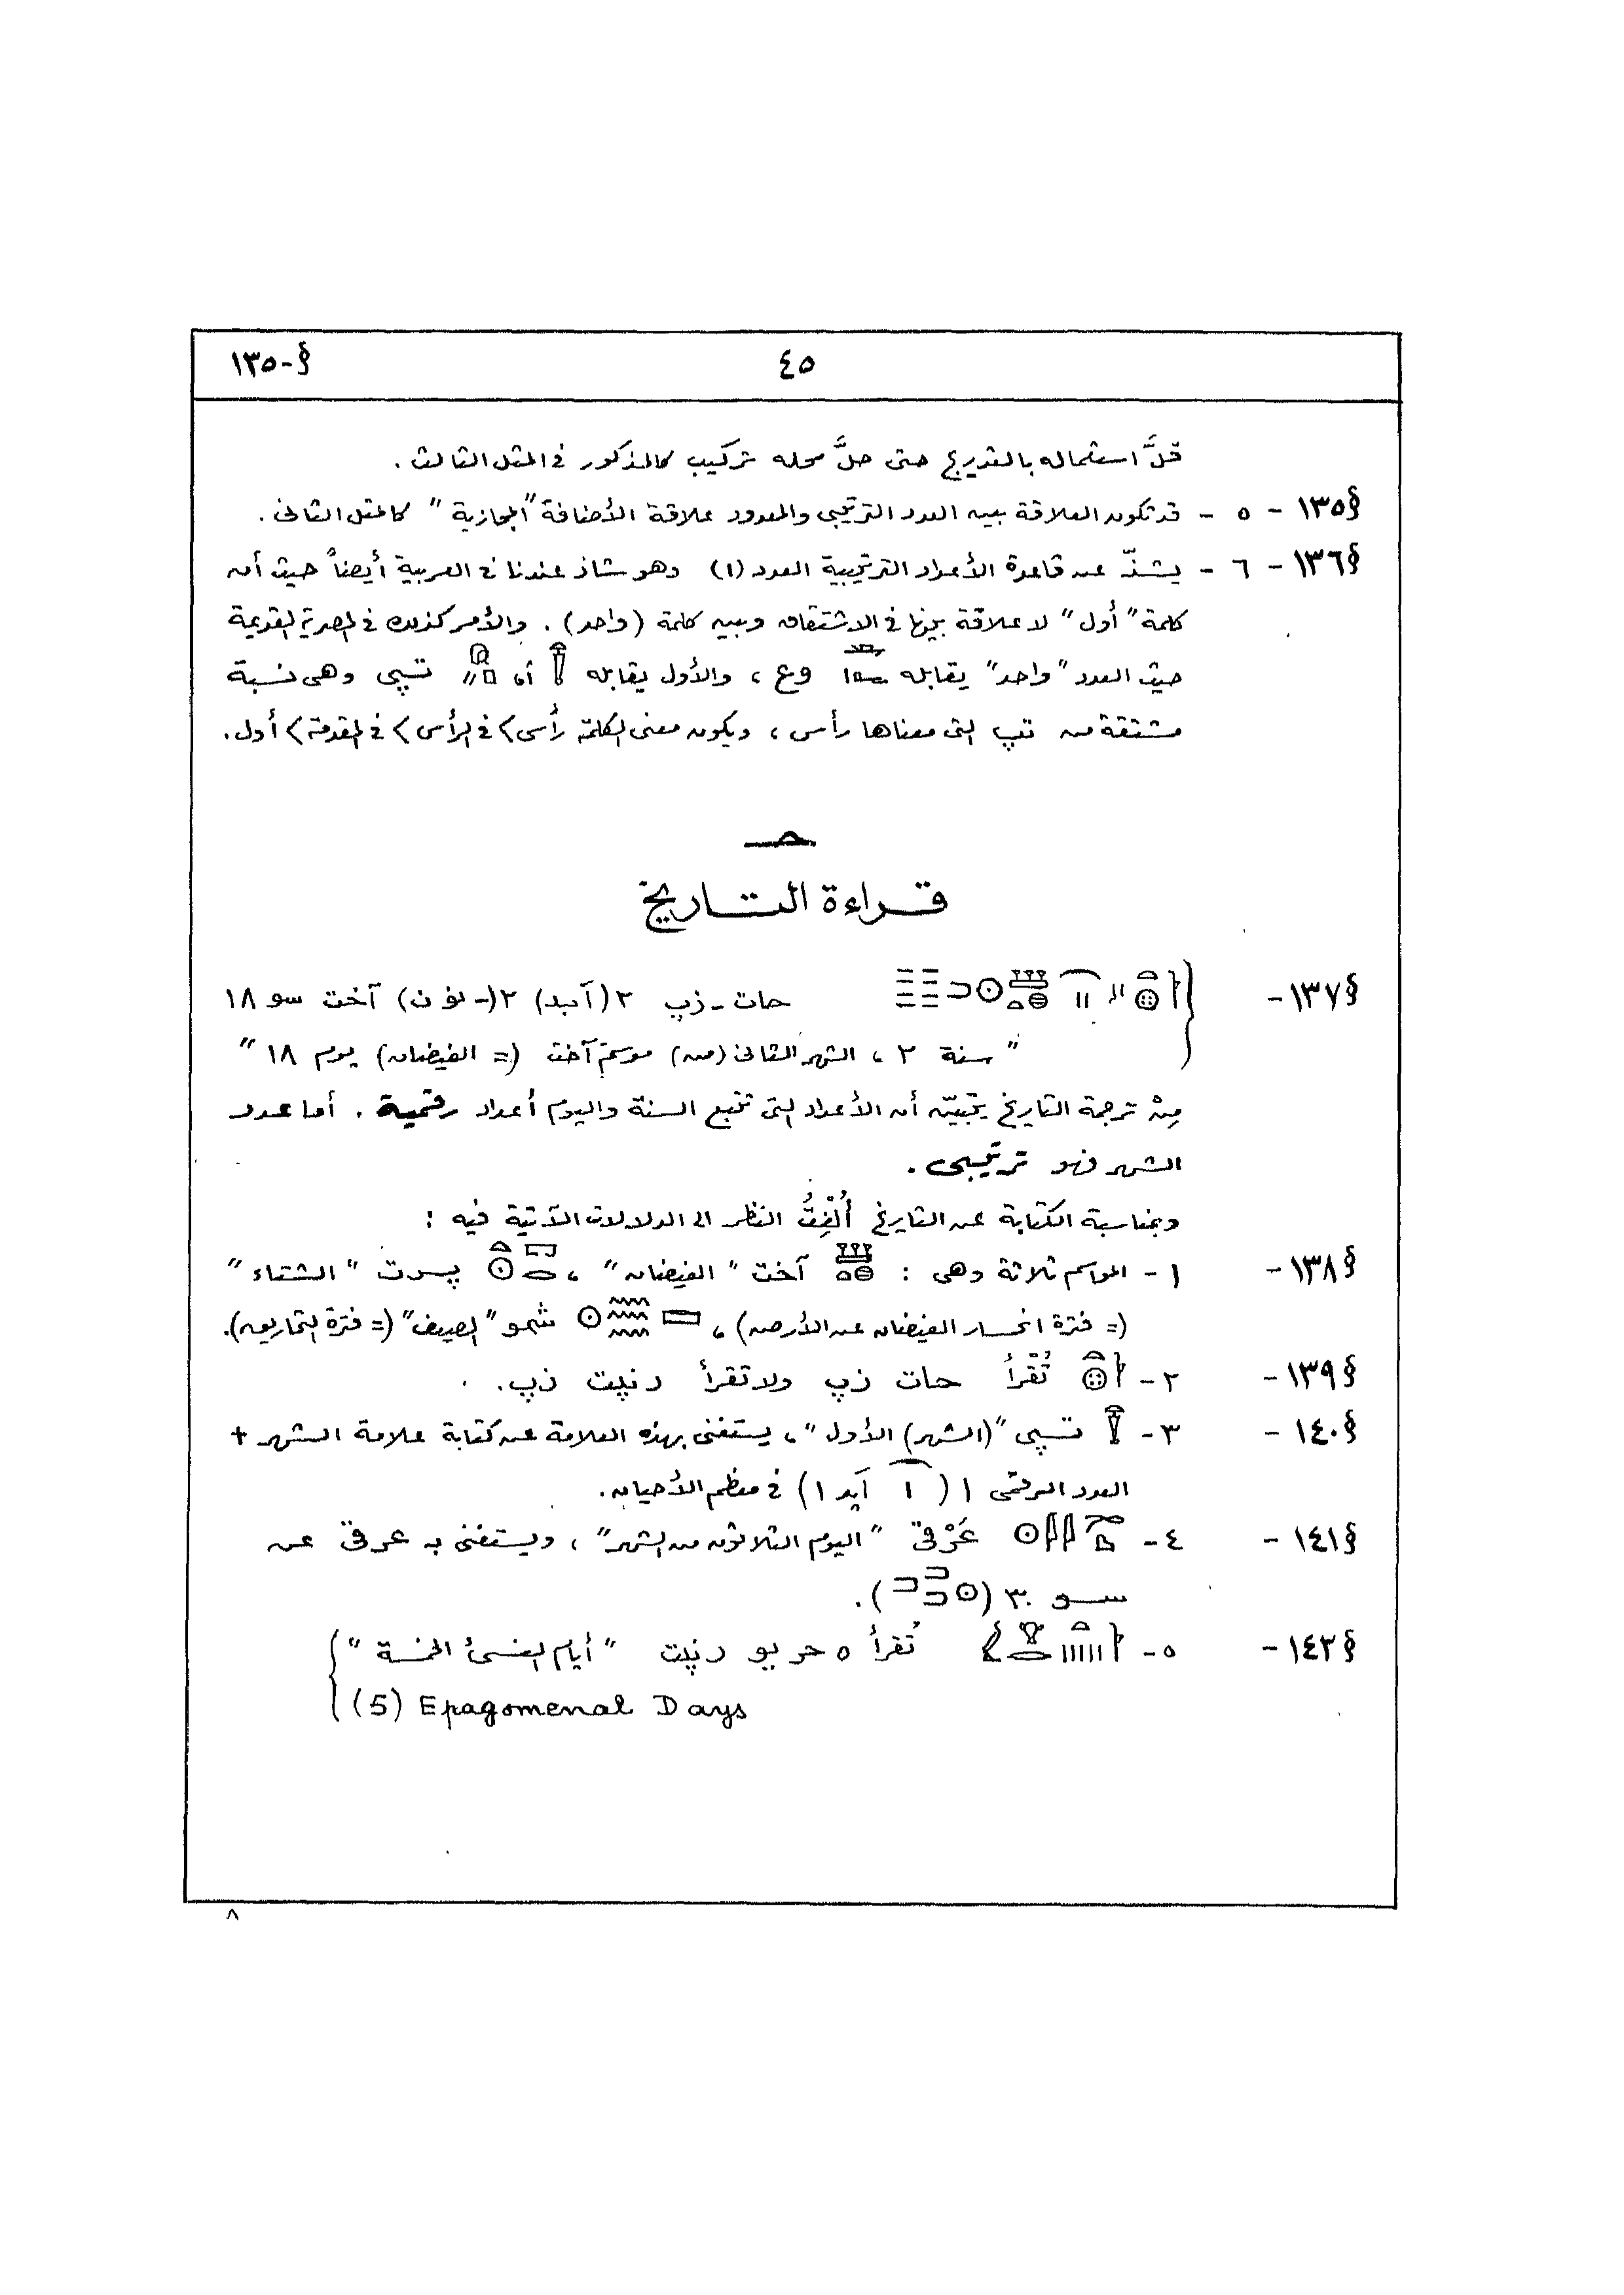 §-١٣٥
٤٥
قلَّ استعماله بالتدريج حتى حلَّ محله تركيب كالمذكور فى المثل الثالث .
§١٣٥ - ٥ - قد تكون العلاقة بين العدد الترتيبى والمعدود علاقة الأضافة "المجازية" كالمثل الثانى .
§١٣٦ - ٦ - يشذّ عن قاعدة الأعداد الترتيبية العدد (١) وهو شاذ عندنا فى العربية أيضاً حيث أن
كلمة "أول" لا علاقة بينها فى الاشتقاق وبين كلمة (واحد) . والأمر كذلك فى المصرية القديمة
حيث العدد "واحد" يقابله وع ، والأول يقابله أو تـپى وهى نسبة
مشتقة من تپ التى معناها رأس ، ويكون معنى الكلمة رأسى > فى الرأس > فى المقدمة > أول .
حـ
قراءة التاريخ
§١٣٧ - حات - زپ ٢ (آبد) ٢ (- نو ن) آخت سو ١٨
"سنة ٢ ، الشهر الثانى (من) موسم آخت (= الفيضان) يوم ١٨"
مِنْ ترجمة التاريخ يتبيّن أن الأعداد التى تتبع السنة واليوم أعداد رقمية . أما عدد
الشهر فهو ترتيبى .
وبمناسبة الكتابة عن التاريخ أُلْفِتُ النظر الى الدلالات الآتية فيه :
§١٣٨ - ١ - المواسم ثلاثة وهى : آخت "الفيضان" ، پـرت "الشتاء"
(= فترة انحسار الفيضان عن الأرض) ، شمو "الصيف" (= فترة التحاريق).
§١٣٩ - ٢ - تُقْرأ حات زپ ولا تقرأ رنپت زپ .
§١٤٠ - ٣ - تـپى "(الشهر) الأول" ، يستغنى بهذه العلامة عن كتابة علامة الشهر +
العدد الرقمى ١ (آبد ١) فى معظم الأحيان .
§١٤١ - ٤ - عَرْقى "اليوم الثلاثون من الشهر" ، ويستغنى به عرقى عن
سـو ٣٠ ( ) .
§١٤٢ - ٥ - تُقرأ ٥ حريو رنپت "أيام النسئ الخمسة"
(5) Epagomenal Days
٨